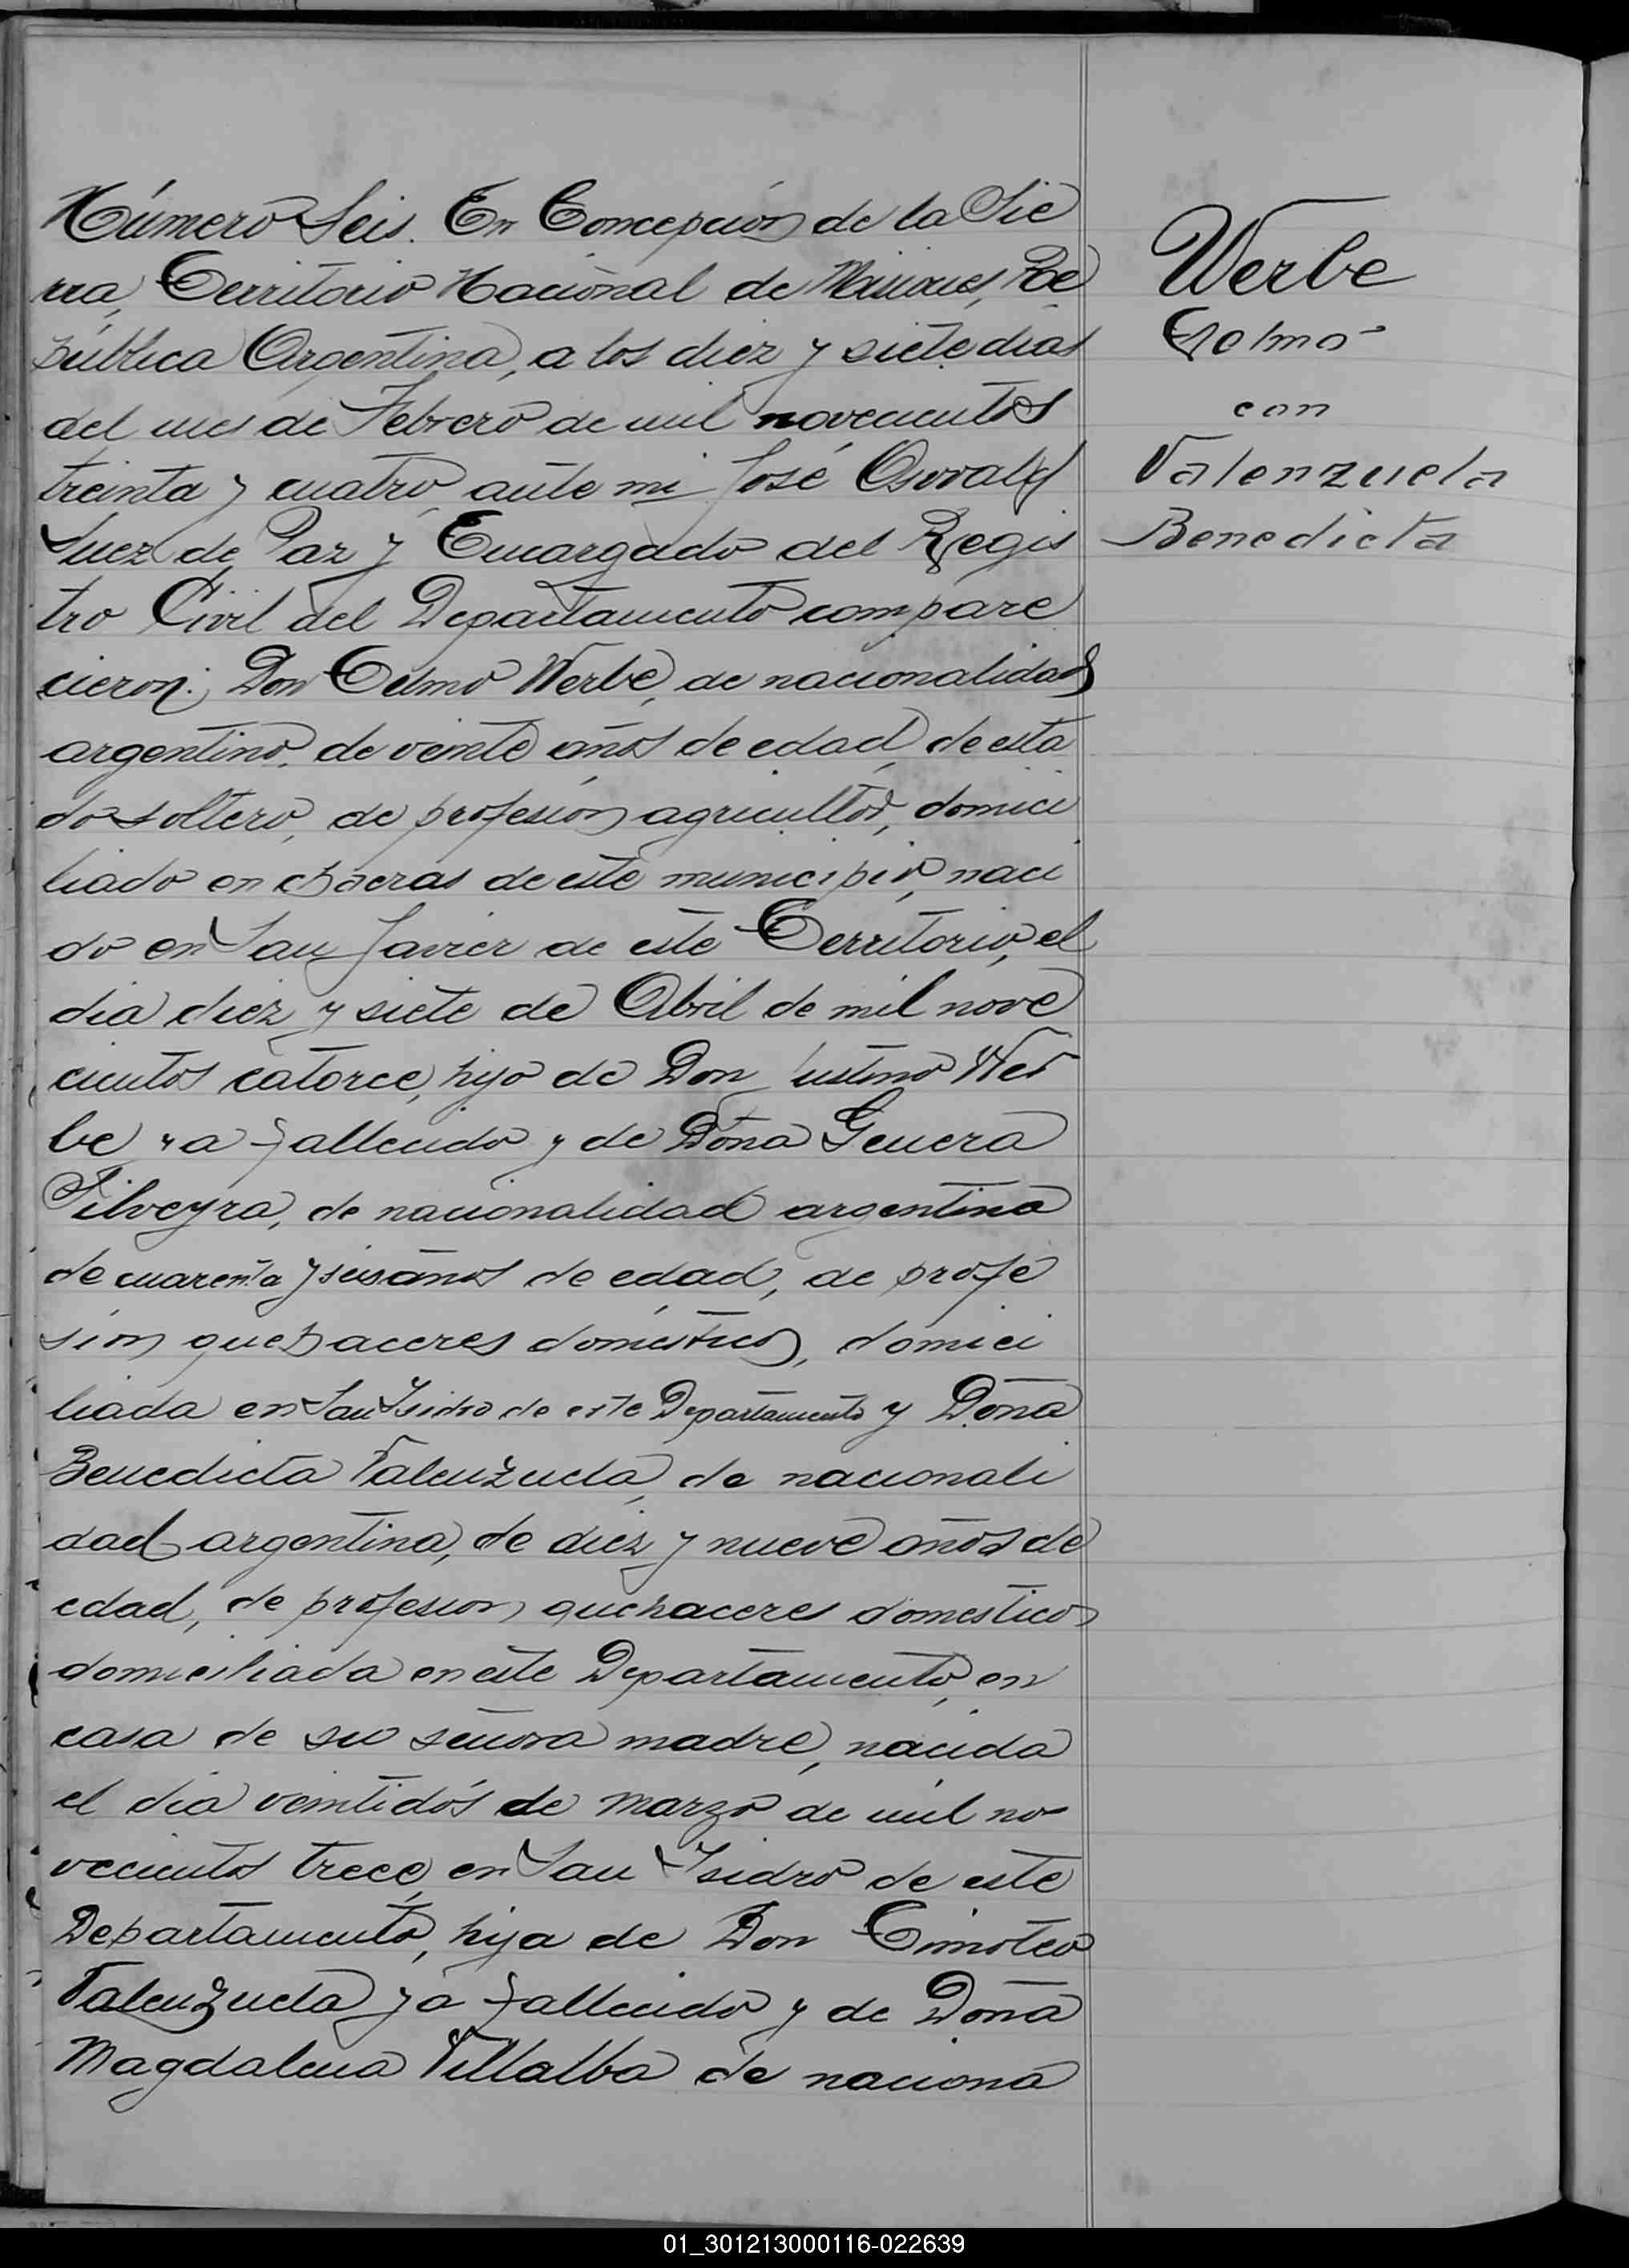 Número Seis. En Concepción de la Sie
rra, Territorio Nacional de Misiones, Re
pública Argentina, a los diez y siete dias
del mes de Febrero de mil novecientos
treinta y cuatro, ante mi José Osvald
Juez de Paz y Encargado del Regis
tro Civil del Departamento compare
cieron: Don Telmo Werbe, de nacionalidad
argentino, de veinte años de edad, de esta
do soltero, de profesión agricultor, domici
liado en chacras de este municipio, naci
do en San Javier de este Territorio, el
dia diez y siete de Abril de mil nove
cientos catorce, hijo de Don Justino Wer
be ya fallecido y de Doña Genera
Silveyra, de nacionalidad argentina
de cuarenta y seis años de edad, de profe
sión quehaceres domésticos, domici
liada en San Isidro de este Departamento y Doña
Benedicta Valenzuela, de nacionali
dad argentina, de diez y nueve años de
edad, de profesion quehaceres domesticos
domiciliada en este Departamento, en
casa de su señora madre, nacida
el día veintidós de marzo de mil no
vecientos trece, en San Isidro de este
Departamento, hija de Don Timoteo
Valenzuela ya fallecido y de Doña
Magdalena Villalba de naciona
Werbe
Telmo
con
Valenzuela
Benedicta
01_301213000116-022639